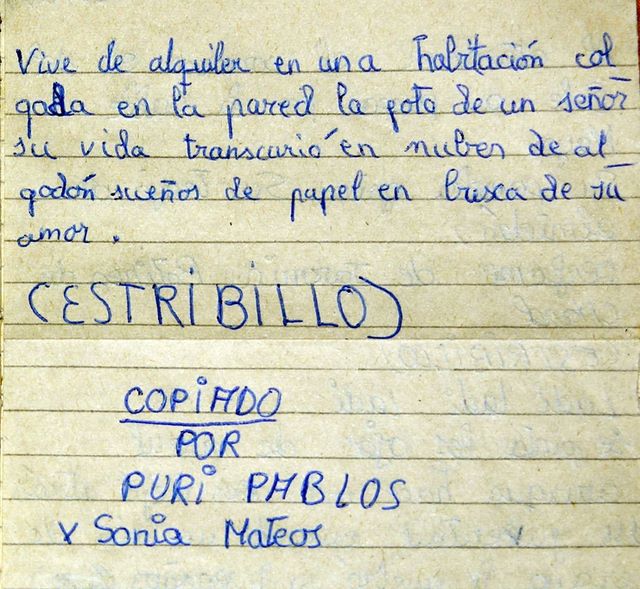 Vive de alquiler en una habitación col
gada en la pared la foto de un señor
su vida transcurió en nuber de al
godón sueños de papel en busca de su
amor.
(ESTRIBILLO)
COPIADO
POR
PURI PABLOS
Y Sonia Mateos